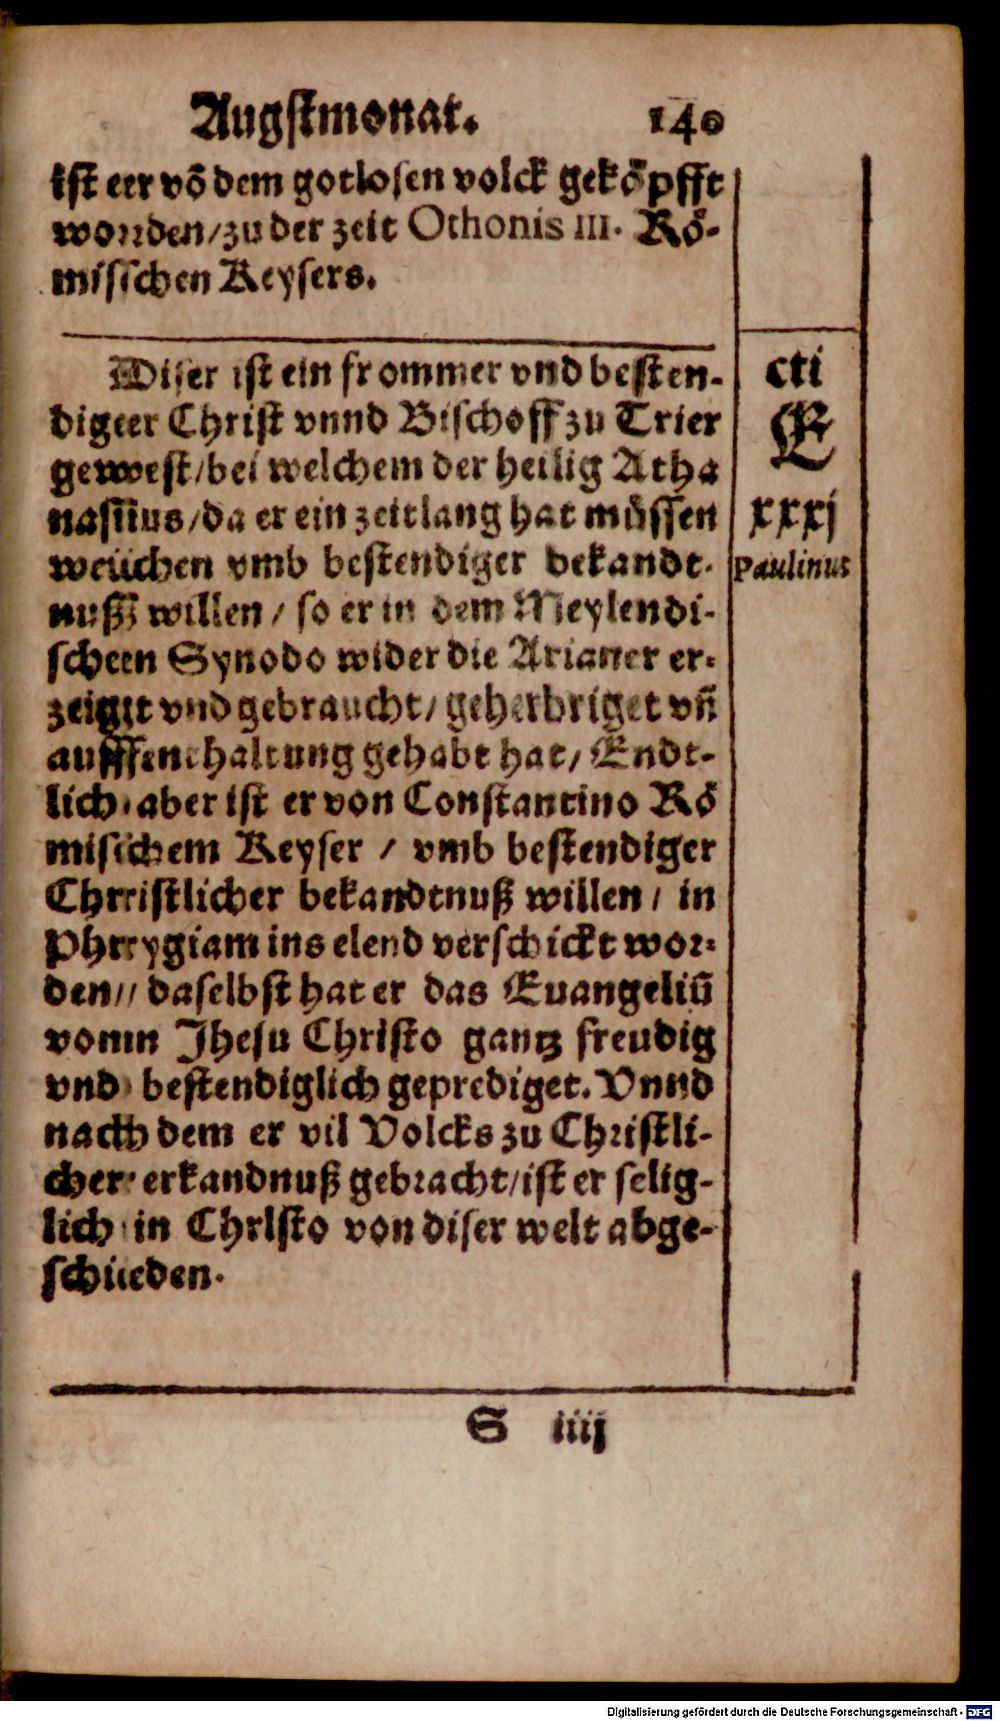 Augstmonat. 140
ist er võ dem gotlosen volck geköpfft
worden/zu der zeit Othonis III. Rö-
mischen Keysers.
Diser ist ein frommer vnd besten-
diger Christ vnnd Bischoff zu Trier
gewest/bei welchem der heilig Atha
nasius/da er ein zeitlang hat müssen
weichen vmb bestendiger bekandt-
nuß willen/ so er in dem Meylendi-
schen Synodo wider die Arianer er-
zeigt vnd gebraucht/ geherbriget vñ
auffenthaltung gehabt hat/ Endt-
lich aber ist er von Constantino Rö
mischem Keyser / vmb bestendiger
Christlicher bekandtnuß willen/ in
Phrygiam ins elend verschickt wor-
den/ daselbst hat er das Euangeliũ
vonn Jhesu Christo gantz freudig
vnd bestendiglich geprediget. Vnnd
nach dem er vil Volcks zu Christli-
cher erkandnuß gebracht/ist er selig-
lich in Christo von diser welt abge-
schieden.
cti
E
xxxj
Paulinus
S iiij
Digitalisierung gefördert durch die Deutsche Forschungsgemeinschaft - DFG